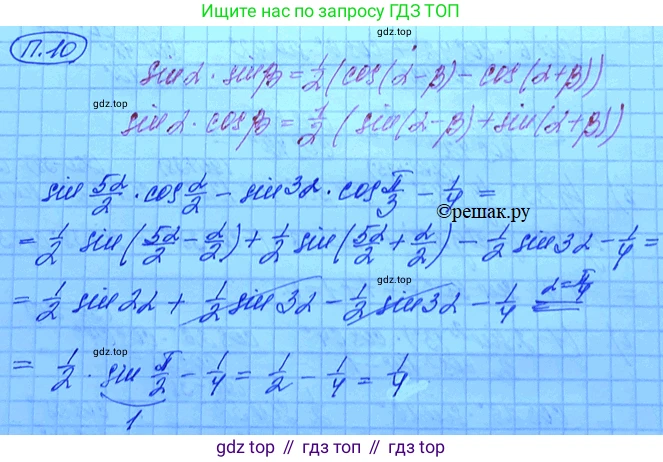 Ищите нас по запросу ГДЗ ТОП
П.10
sin α · sin β = 1/2 (cos(α-β) - cos(α+β))
gdz.top
sin α · cos β = 1/2 (sin(α-β) + sin(α+β))
gdz.top
gdz.top
sin 5α/2 · cos α/2 - sin 3α · cos π/3 - 1/4 =
©решак.ру
= 1/2 sin(5α/2 - α/2) + 1/2 sin(5α/2 + α/2) - 1/2 sin 3α - 1/4 =
= 1/2 sin 2α + 1/2 sin 3α - 1/2 sin 3α - 1/4 = α=π/4
gdz.top
gdz.top
= 1/2 · sin π/2 - 1/4 = 1/2 - 1/4 = 1/4
1
gdz.top // гдз.топ // gdz.top // гдз.топ